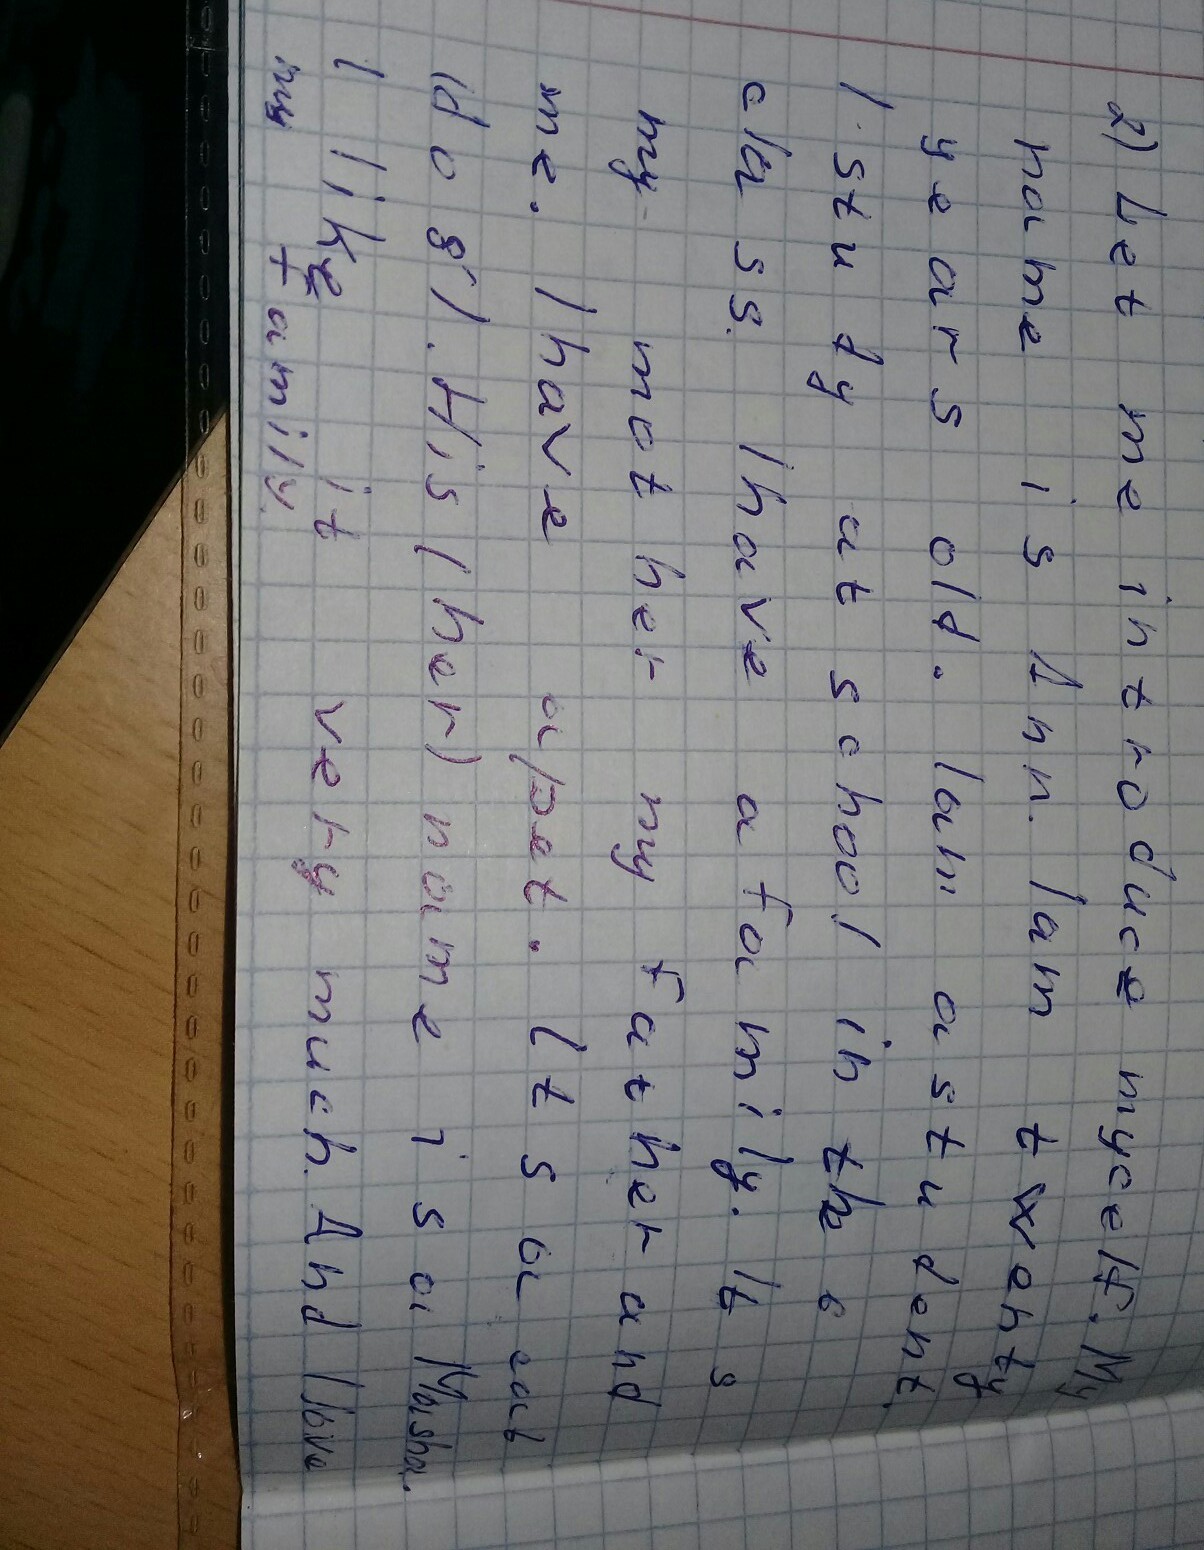 2) Let me introduce mycelf. My
name is Ann. I am twenty
years old. I am a student.
I study at school in the 6
class. I have a family. It s
my mother my father and
me. I have a pet. It s a cat
(dog). His (her) name is a Masha.
I like it very much. And I love
my family.